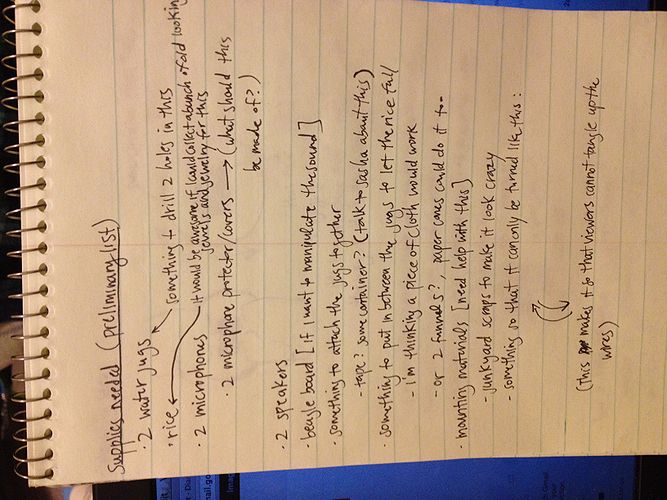 Supplies needed (preliminary list)
· 2 water jugs
something to drill 2 holes in this
· rice
it would be awesome if I could collect a bunch of old looking
jewels and jewelry for this
· 2 microphones
· 2 microphone protector/covers → (what should this
be made of?)
· 2 speakers
· beagle board [if I want to manipulate the sound]
· something to attach the jugs together
- tape? some container? (talk to sasha about this)
· something to put in between the jugs to let the rice fall
- I'm thinking a piece of cloth would work
- or 2 funnels?, paper cones could do it to-
· mounting materials [need help with this]
- junkyard scraps to make it look crazy
- something so that it can only be turned like this:
(this makes it so that viewers cannot tangle up the
wires)